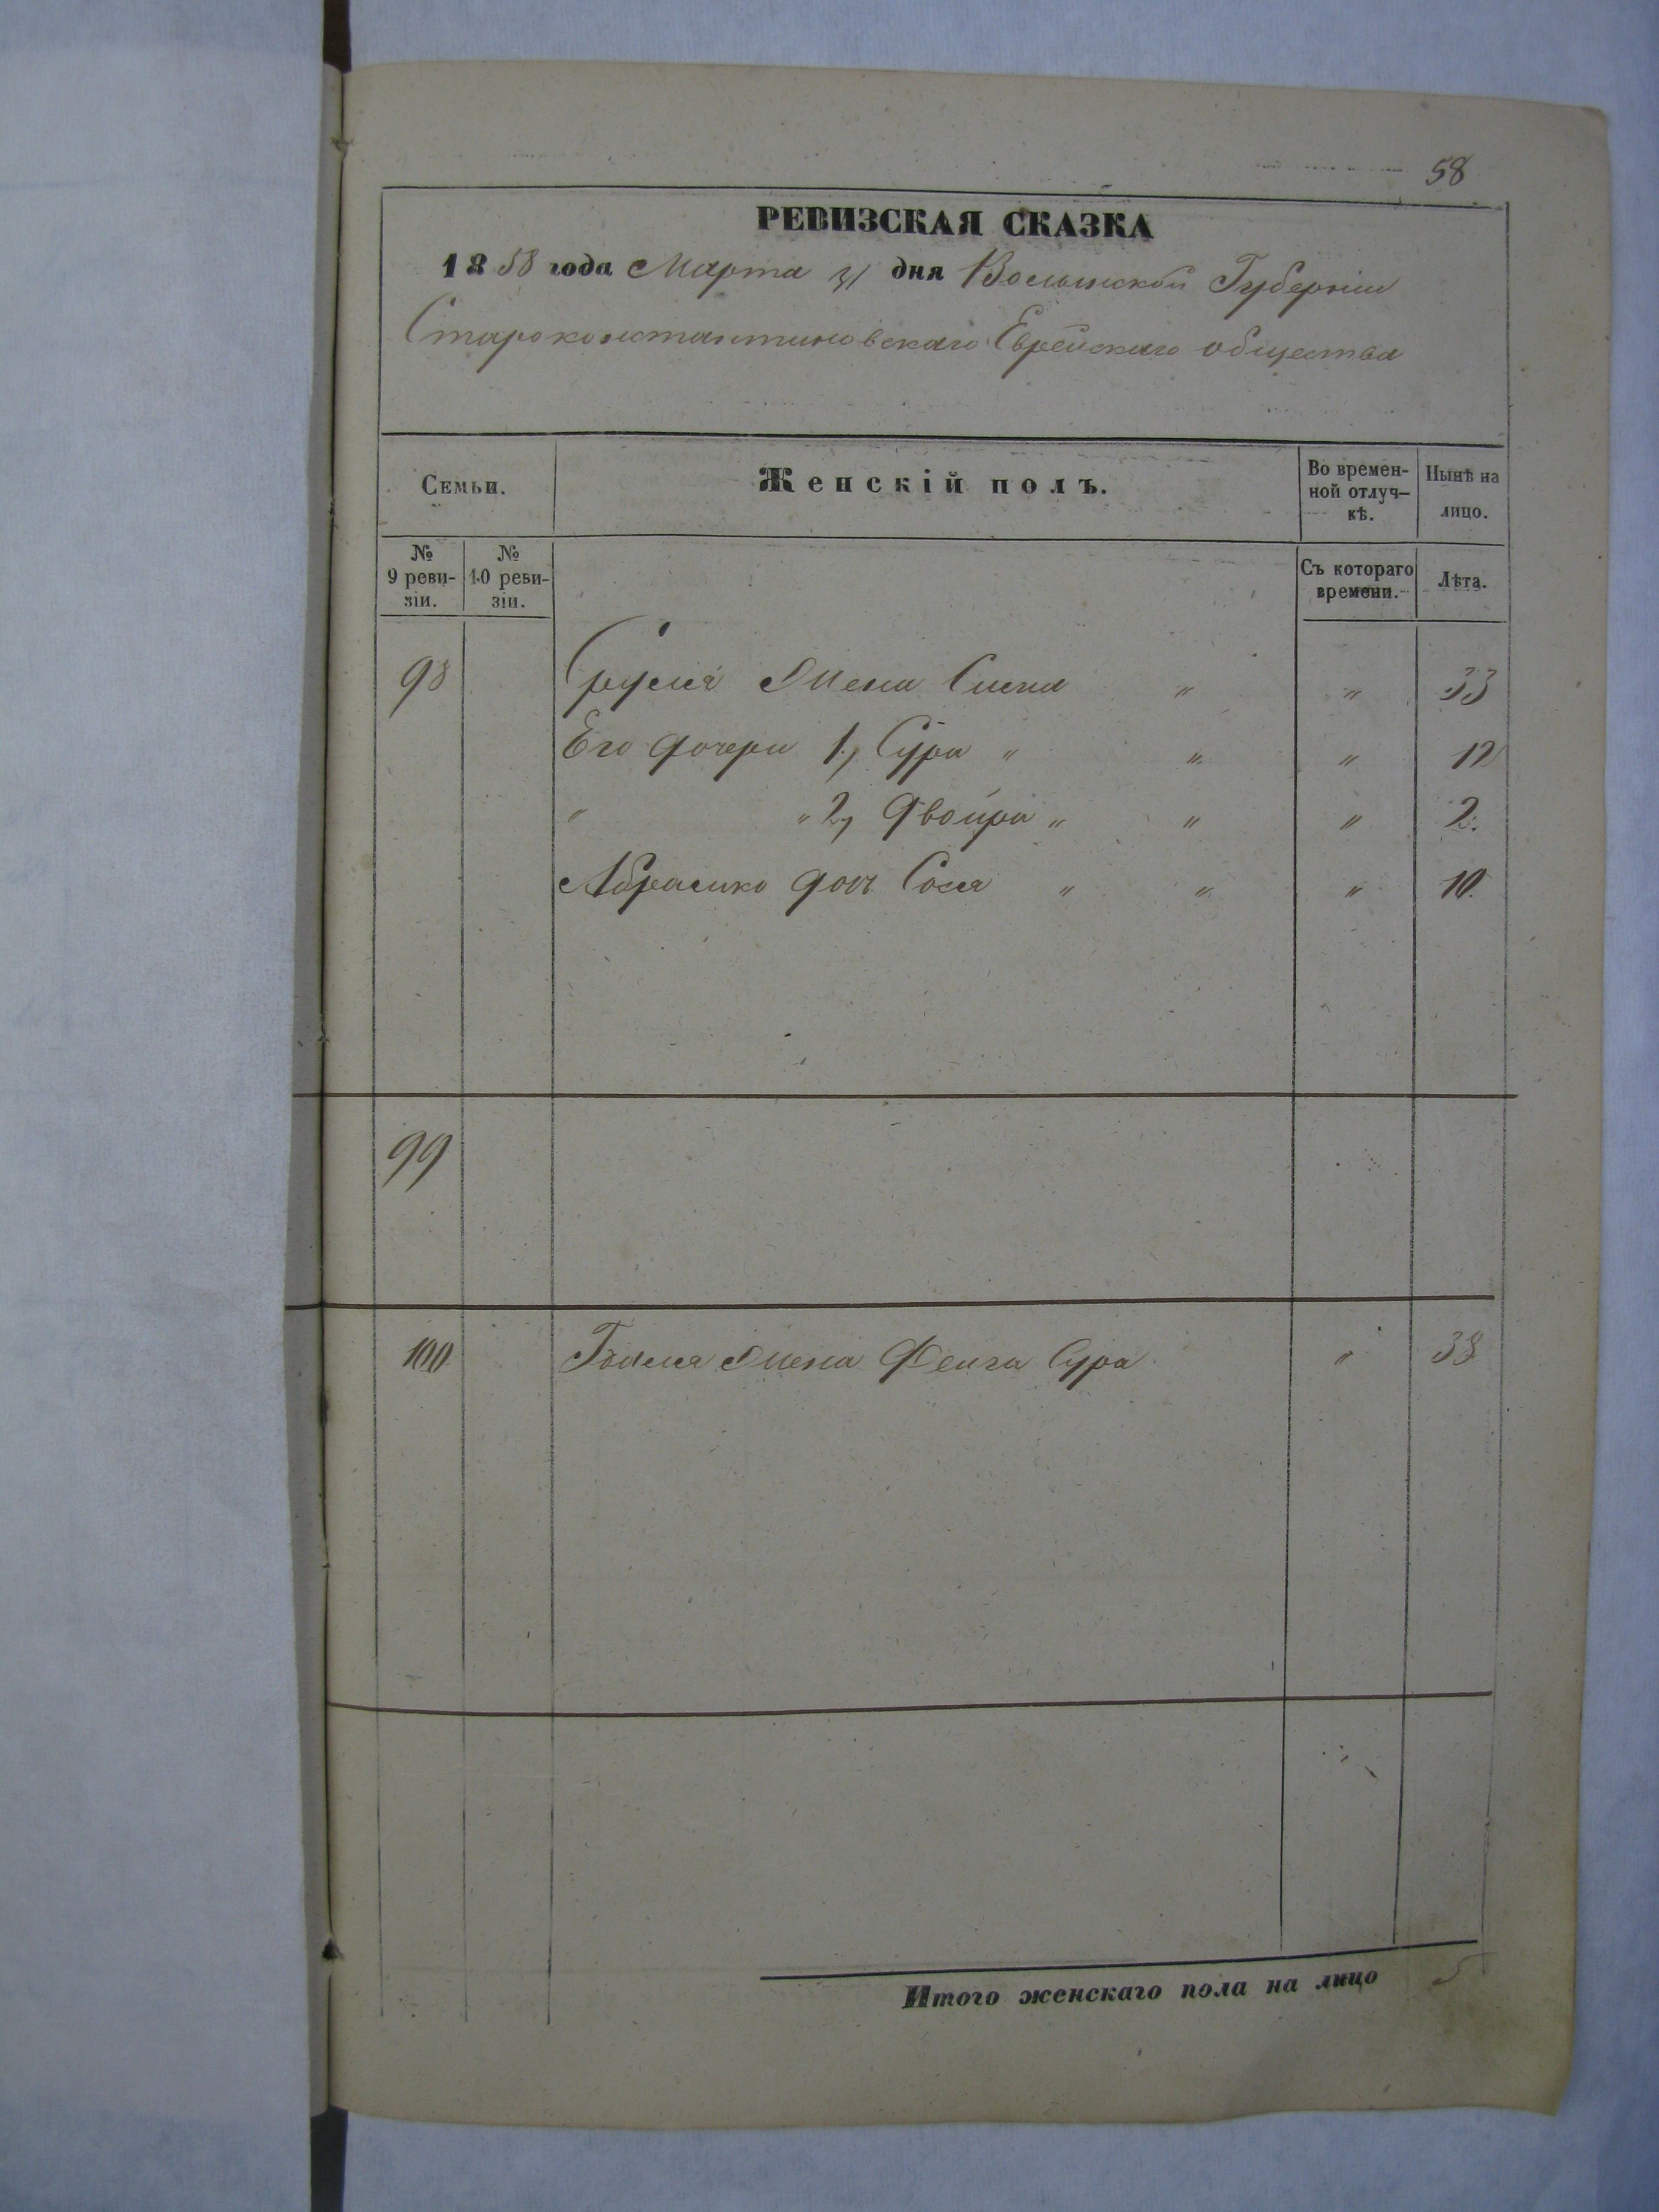 58
РЕВИЗСКАЯ СКАЗКА
1858 года Марта 31 дня Волынской Губерніи
Староконстантиновскаго Еврейскаго общества
Семьи. Женскій полъ. Во времен- Нынѣ на
ной отлуч- лицо.
кѣ.
№ 9 реви-зіи. № 10 реви-зіи. Съ котораго времени. Лѣта.
98 Сруля Жена " " 33
Его дочери 1, Сура " " " 12
" " 2, Двойра " " " 2.
Абрамко доч Сося " " " 10.
99
100 Жена Фейга Сура " 38
Итого женскаго пола на лицо 5